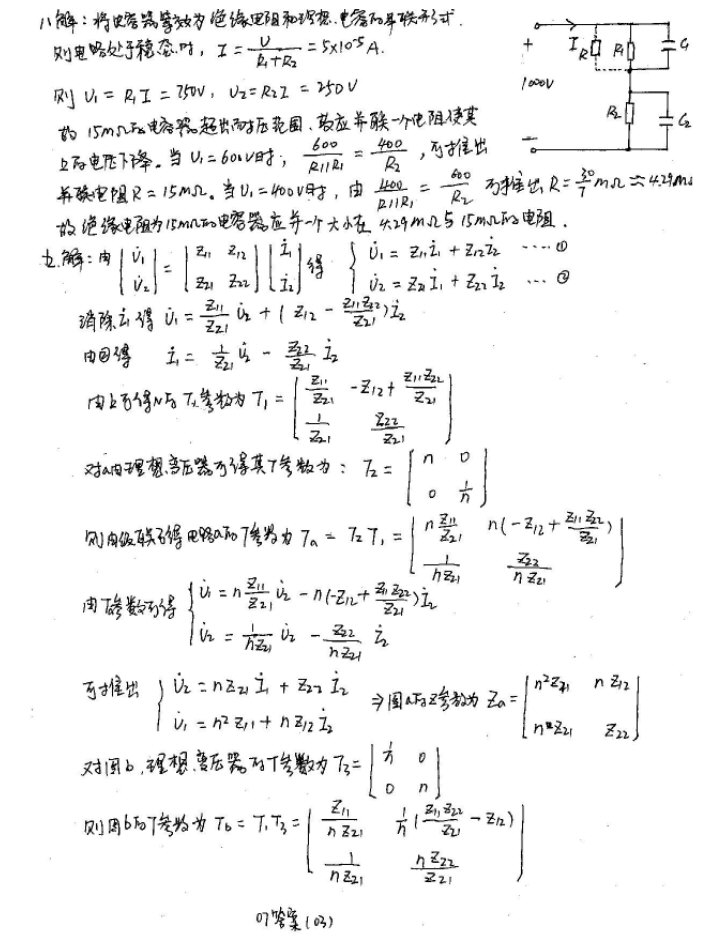 八、解：将电容器等效为绝缘电阻和理想电容的并联形式.
则电路处于稳态时，I = U/(R₁+R₂) = 5×10⁻⁵A.
则 U₁ = R₁I = 750V, U₂ = R₂I = 250V
故 15mΩ的电容器超出耐压范围，故应并联一个电阻使其
上的电压下降。当 U₁=600V时, 600/(R//R₁) = 400/R₂, 可推出
并联电阻 R = 15mΩ. 当U₁=400V时, 由 400/(R//R₁) = 600/R₂ 可推出 R = 30/7 mΩ ≈ 4.29mΩ
故绝缘电阻为15mΩ的电容器应并一个大小在 4.29mΩ与15mΩ的电阻.
+ I R R₁ C₁
1000V
R₂ C₂
−
九.解：由 [U̇₁; U̇₂] = [Z₁₁ Z₁₂; Z₂₁ Z₂₂] [İ₁; İ₂] 得 { U̇₁ = Z₁₁İ₁ + Z₁₂İ₂ ----- ①
U̇₂ = Z₂₁İ₁ + Z₂₂İ₂ --- ②
消除İ₁得 U̇₁ = Z₁₁/Z₂₁ U̇₂ + (Z₁₂ − Z₁₁Z₂₂/Z₂₁)İ₂
由②得 İ₁ = 1/Z₂₁ U̇₂ − Z₂₂/Z₂₁ İ₂
由上可得N的T参数为 T₁ = [Z₁₁/Z₂₁ −Z₁₂+Z₁₁Z₂₂/Z₂₁; 1/Z₂₁ Z₂₂/Z₂₁]
对a由理想变压器可得其T参数为: T₂ = [n 0; 0 1/n]
则由级联可得电路a的T参数为 Ta = T₂T₁ = [nZ₁₁/Z₂₁ n(−Z₁₂+Z₁₁Z₂₂/Z₂₁); 1/(nZ₂₁) Z₂₂/(nZ₂₁)]
由T参数可得 { U̇₁ = n Z₁₁/Z₂₁ U̇₂ − n(−Z₁₂+Z₁₁Z₂₂/Z₂₁)İ₂
U̇₂ = 1/(nZ₂₁) U̇₂ − Z₂₂/(nZ₂₁) İ₂
可推出 { U̇₂ = nZ₂₁İ₁ + Z₂₂İ₂ ⇒图a的Z参数为 Za = [n²Z₁₁ nZ₁₂; nZ₂₁ Z₂₂]
U̇₁ = n²Z₁₁ + nZ₁₂İ₂
对图b,理想变压器的T参数为 T₃ = [1/n 0; 0 n]
则图b的T参数为 Tb = T₁T₃ = [Z₁₁/(nZ₂₁) 1/n(Z₁₁Z₂₂/Z₂₁ − Z₁₂); 1/(nZ₂₁) nZ₂₂/Z₂₁]
07答案(03)